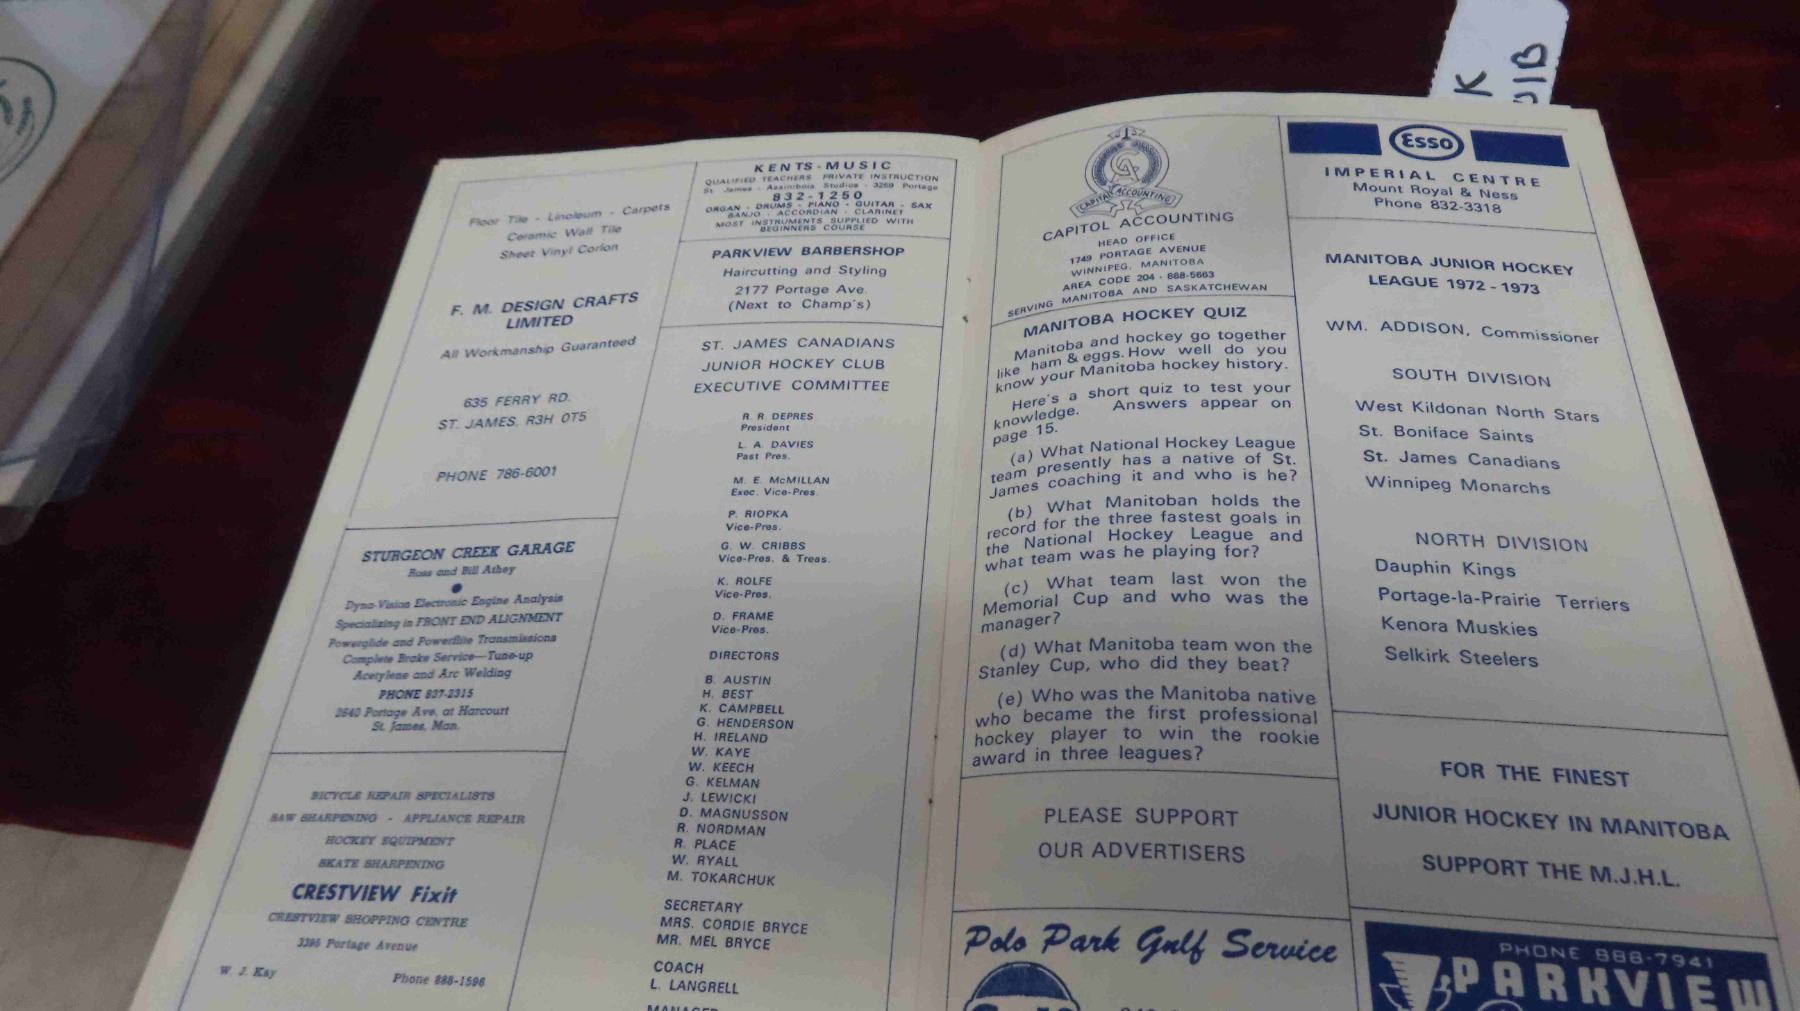 Floor Tile - Linoleum - Carpets
Ceramic Wall Tile
Sheet Vinyl Corlon
F. M. DESIGN CRAFTS
LIMITED
All Workmanship Guaranteed
635 FERRY RD.
ST. JAMES, R3H 0T5
PHONE 786-6001
STURGEON CREEK GARAGE
Ross and Bill Athey
Dyna-Vision Electronic Engine Analysis
Specializing in FRONT END ALIGNMENT
Powerglide and Powerflite Transmissions
Complete Brake Service—Tune-up
Acetylene and Arc Welding
PHONE 837-2315
2640 Portage Ave. at Harcourt
St. James, Man.
BICYCLE REPAIR SPECIALISTS
SAW SHARPENING - APPLIANCE REPAIR
HOCKEY EQUIPMENT
SKATE SHARPENING
CRESTVIEW Fixit
CRESTVIEW SHOPPING CENTRE
3395 Portage Avenue
W. J. Kay Phone 888-1596
KENTS-MUSIC
QUALIFIED TEACHERS PRIVATE INSTRUCTION
St. James - Assiniboia Studios - 3259 Portage
832-1250
ORGAN - DRUMS - PIANO - GUITAR - SAX
BANJO - ACCORDIAN - CLARINET
MOST INSTRUMENTS SUPPLIED WITH
BEGINNERS COURSE
PARKVIEW BARBERSHOP
Haircutting and Styling
2177 Portage Ave.
(Next to Champ's)
ST. JAMES CANADIANS
JUNIOR HOCKEY CLUB
EXECUTIVE COMMITTEE
R. R. DEPRES
President
L. A. DAVIES
Past Pres.
M. E. McMILLAN
Exec. Vice-Pres.
P. RIOPKA
Vice-Pres.
G. W. CRIBBS
Vice-Pres. & Treas.
K. ROLFE
Vice-Pres.
D. FRAME
Vice-Pres.
DIRECTORS
B. AUSTIN
H. BEST
K. CAMPBELL
G. HENDERSON
H. IRELAND
W. KAYE
W. KEECH
G. KELMAN
J. LEWICKI
D. MAGNUSSON
R. NORDMAN
R. PLACE
W. RYALL
M. TOKARCHUK
SECRETARY
MRS. CORDIE BRYCE
MR. MEL BRYCE
COACH
L. LANGRELL
MANAGER
CA
CAPITOL ACCOUNTING
CAPITOL ACCOUNTING
HEAD OFFICE
1749 PORTAGE AVENUE
WINNIPEG, MANITOBA
AREA CODE 204 - 888-5663
SERVING MANITOBA AND SASKATCHEWAN
MANITOBA HOCKEY QUIZ
Manitoba and hockey go together
like ham & eggs. How well do you
know your Manitoba hockey history.
Here's a short quiz to test your
knowledge. Answers appear on
page 15.
(a) What National Hockey League
team presently has a native of St.
James coaching it and who is he?
(b) What Manitoban holds the
record for the three fastest goals in
the National Hockey League and
what team was he playing for?
(c) What team last won the
Memorial Cup and who was the
manager?
(d) What Manitoba team won the
Stanley Cup, who did they beat?
(e) Who was the Manitoba native
who became the first professional
hockey player to win the rookie
award in three leagues?
PLEASE SUPPORT
OUR ADVERTISERS
Polo Park Gulf Service
Esso
IMPERIAL CENTRE
Mount Royal & Ness
Phone 832-3318
MANITOBA JUNIOR HOCKEY
LEAGUE 1972 - 1973
WM. ADDISON, Commissioner
SOUTH DIVISION
West Kildonan North Stars
St. Boniface Saints
St. James Canadians
Winnipeg Monarchs
NORTH DIVISION
Dauphin Kings
Portage-la-Prairie Terriers
Kenora Muskies
Selkirk Steelers
FOR THE FINEST
JUNIOR HOCKEY IN MANITOBA
SUPPORT THE M.J.H.L.
PHONE 888-7941
PARKVIEW